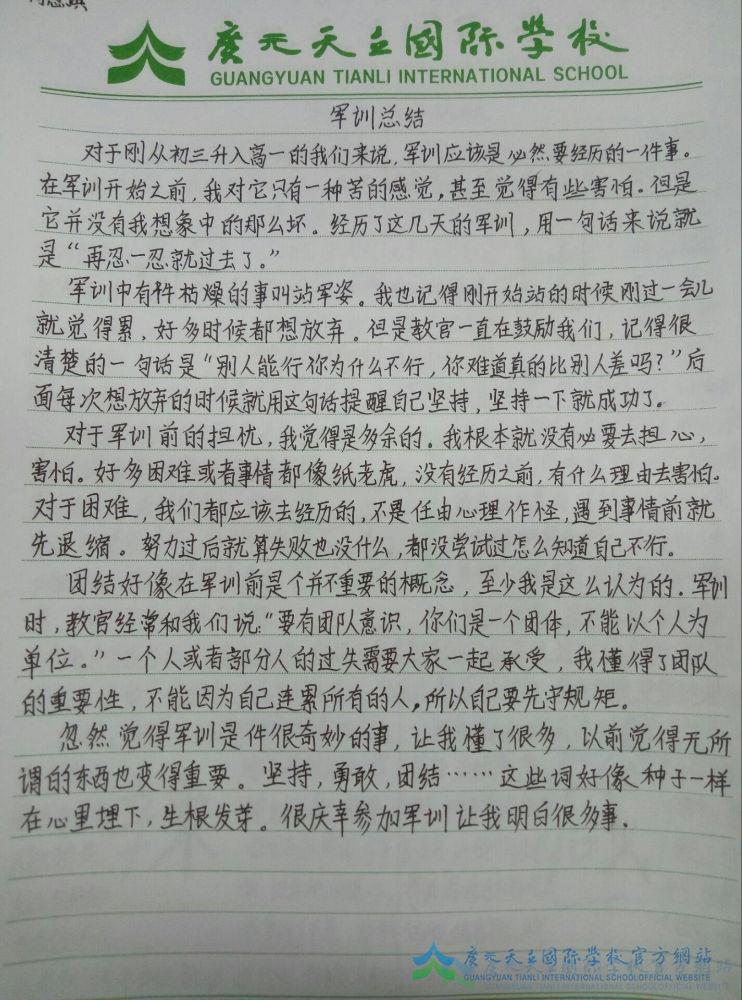 廣元天立國际学校
GUANGYUAN TIANLI INTERNATIONAL SCHOOL
军训总结
对于刚从初三升入高一的我们来说,军训应该是必然要经历的一件事。
在军训开始之前,我对它只有一种苦的感觉,甚至觉得有些害怕。但是
它并没有我想象中的那么坏。经历了这几天的军训,用一句话来说就
是“再忍一忍就过去了。”
军训中有件枯燥的事叫站军姿。我也记得刚开始站的时候刚过一会儿
就觉得累,好多时候都想放弃。但是教官一直在鼓励我们,记得很
清楚的一句话是“别人能行你为什么不行,你难道真的比别人差吗?”后
面每次想放弃的时候就用这句话提醒自己坚持,坚持一下就成功了。
对于军训前的担忧,我觉得是多余的。我根本就没有必要去担心,
害怕。好多困难或者事情都像纸老虎,没有经历之前,有什么理由去害怕。
对于困难,我们都应该去经历的,不是任由心理作怪,遇到事情前就
先退缩。努力过后就算失败也没什么,都没尝试过怎么知道自己不行。
团结好像在军训前是个并不重要的概念,至少我是这么认为的。军训
时,教官经常和我们说:“要有团队意识,你们是一个团体,不能以个人为
单位。”一个人或者部分人的过失需要大家一起承受,我懂得了团队
的重要性,不能因为自己连累所有的人,所以自己要先守规矩。
忽然觉得军训是件很奇妙的事,让我懂了很多,以前觉得无所
谓的东西也变得重要。坚持,勇敢,团结……这些词好像种子一样
在心里埋下,生根发芽。很庆幸参加军训让我明白很多事.
廣元天立國际学校官方網站
GUANGYUAN TIANLI INTERNATIONAL SCHOOLOFFICIAL WEBSITE